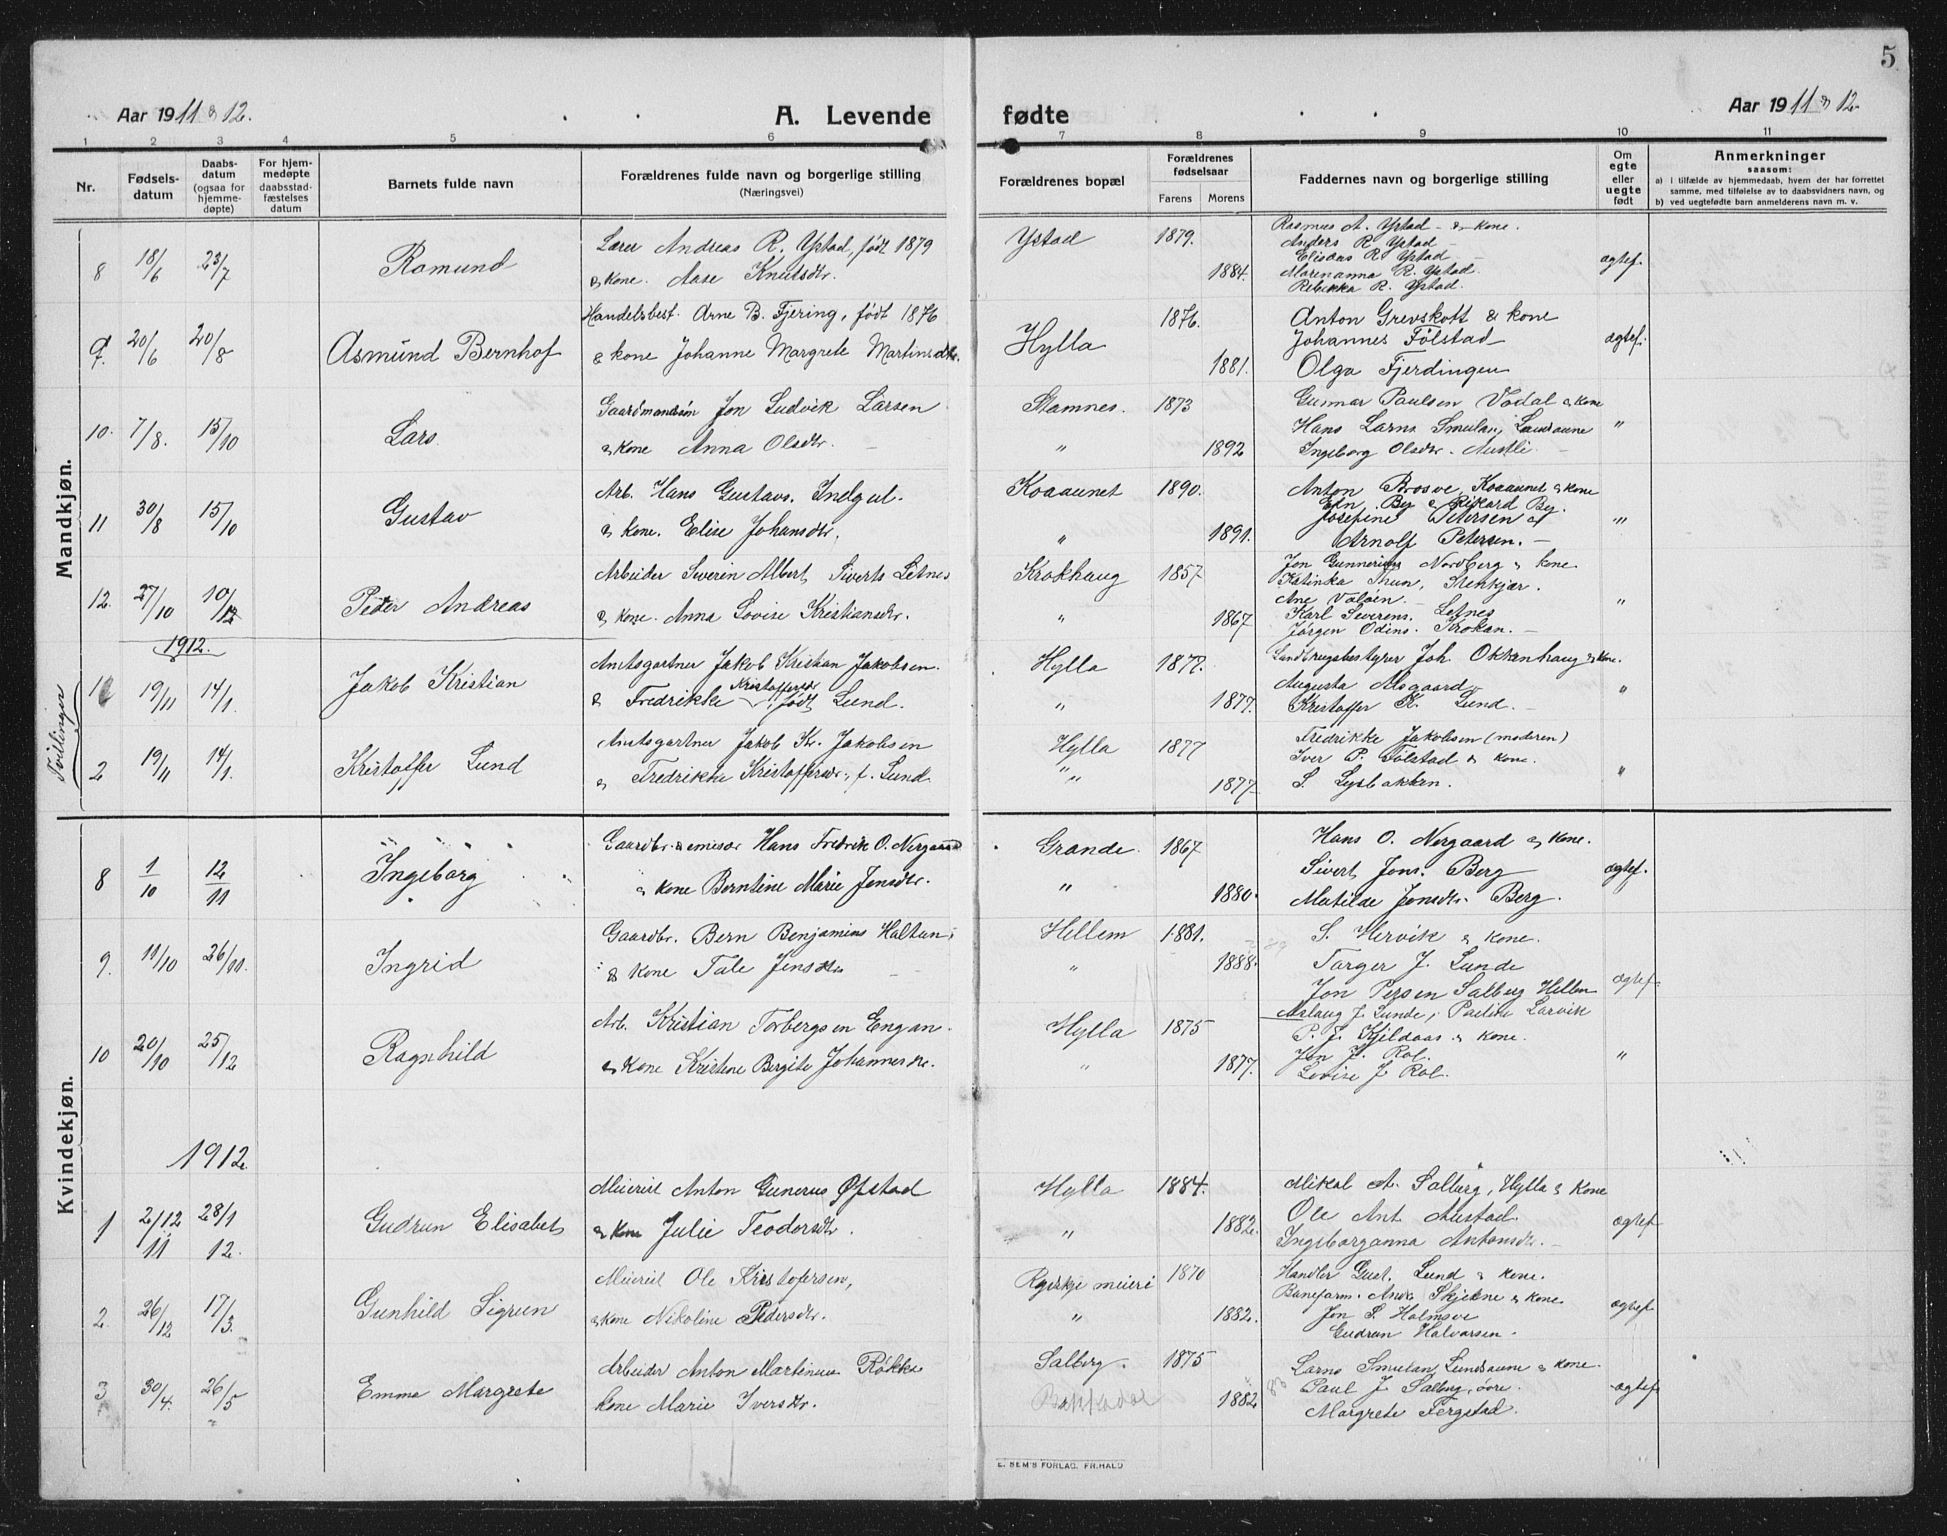 5
Aar 1911 & 12.
A. Levende fødte
Aar 1911 & 12
1 2 3 4 5 6 7 8 9 10 11
Nr.
Fødsels-datum
Daabs-datum (ogsaa for hjemme-døpte)
For hjem-medøpte daabsstad-fæstelses datum
Barnets fulde navn
Forældrenes fulde navn og borgerlige stilling
(Næringsvei)
Forældrenes bopæl
Forældrenes fødselsaar
Farens Morens
Faddernes navn og borgerlige stilling
Om egte eller uegte født
Anmerkninger
saasom:
a) i tilfælde av hjemmedaab, hvem der har forrettet samme, med tilføielse av to daabsvidners navn, og
b) ved uegtefødte barn anmelderens navn m. v.
Mandkjøn.
8 18/6 23/7 Romund
Lærer Andreas R. Ystad, født 1879
& kone. Aase Knutsdtr.
Ystad 1879.
1884.
Rasmus A. Ystad & kone.
Anders R. Ystad
Elisæus R. Ystad
Marenanna R. Ystad.
Rebekka R. Ystad.
ægtef.
9. 20/6 20/8 Asmund Bernhof
Handelsbest. Arne B. Fjering, født 1876
& kone Johanne Margrete Martinsdtr.
Hylla 1876.
1881.
Anton Grevskott & kone
Johannes Følstad
Olga Fjerdingen
ægtef.
10. 7/8. 15/10 Lars.
Gaardmandsøn Jon Ludvik Larsen
& kone Anna Olsdtr.
Stamnes. 1873
" 1892
Gunnar Paulsen Vådal & kone
Hans Larns. Smulan, Lundsaune
Ingeborg Olsdtr. Austli.
"
11 30/8 15/10 Gustav
Arb. Hans Gustavs. Indgul.
& kone. Elise Johansdtr.
Koaaunet 1890.
" 1891.
Anton Brosve, Koaaunet & kone
Edn. By & Rikard By.
Josefine Petersen og
Arnolf Petersen.
"
12. 27/10 10/12 Peder Andreas
Arbeider Severin Albert Siverts Letnes
& kone. Anna Lovise Kristiansdtr.
Krokhaug 1857.
" 1867
Jon Gunnerius Nordberg & kone
Katinka Thun, Stenkjær.
Ane Valøen
Karl Severens. Letnes
Jørgen Odins. Krokan.
"
1912.
Tvillinger
1 19/11 14/1. Jakob Kristian
Amtsgartner Jakob Kristian Jakobsen.
Kristoffersdtr.
& Fredrikke født Lund.
Hylla 1877.
" 1877.
Landbrugsbestyrer Joh. Okkenhaug & kone.
Augusta Alsgaard
Kristoffer K. Lund.
"
2 19/11 14/1. Kristoffer Lund
Amtsgartner Jakob Kr. Jakobsen
& Fredrikke Kristoffersdtr., f. Lund
Hylla 1877
" 1877
Fredrikke Jakobsen (moderen)
Iver P. Følstad & kone.
S. Lysbakken.
"
Kvindekjøn.
8 1/10 12/11 Ingeborg
Gaardbr. & emisær Hans Fredrik O. Nergaard
& kone Berntine Marie Jonsdtr.
Grande. 1867
" 1880.
Hans O. Nergaard & kone.
Sivert Jons. Berg
Matilde Jonsdtr. Berg.
ægtef.
9. 11/10 26/11. Ingrid
Gaardbr. Bern Benjamins Haltun
& kone Tale Jensdtr
Hellem 1881.
" 1888.
S. Hervik & kone.
Targer J. Lunde
Jon Persen Salberg Hellem
Aslaug J. Lunde, Pauline Larvik
ægtef.
10 20/10 25/12 Ragnhild
Arb. Kristian Torbergsen Engan.
& kone Kristine Bergite Johannesdtr.
Hylla 1875
" 1877.
P. J. Kjeldaas & kone.
Jon J. Rol.
Lovise J. Rol.
"
1912
1 2/12 11 28/1 12. Gudrun Elisabet
Meieril Anton Gunerus Øfstad
& kone Julie Teodorsdtr.
Hylla 1884.
" 1882.
Mikal A. Salberg, Hylla & kone
Ole Ant. Austad
Ingeborganna Antonsdtr.
ægtef.
2. 26/12 17/3. Gunhild Sigrun
Meieril Ole Kristofersen,
& kone Nikoline Pedersdtr.
Røiskje meieri 1870
" 1882.
Handler Gust. Lund & kone.
Baneform. Andr. Skjekne & kone
Jon S. Holmsve
Gudrun Halvorsen.
ægtef.
3 30/4. 26/5 Emma Margrete
Arbeider Anton Martinus Røkke
kone Marie Iversdtr.
Salberg. 1875
1882
83
Larns Smulan, Lundsaune & kone.
Paul J Salberg, øvre.
Margrete Fergstad.
ægtef.
E. SEM'S FORLAG, FR.HALD